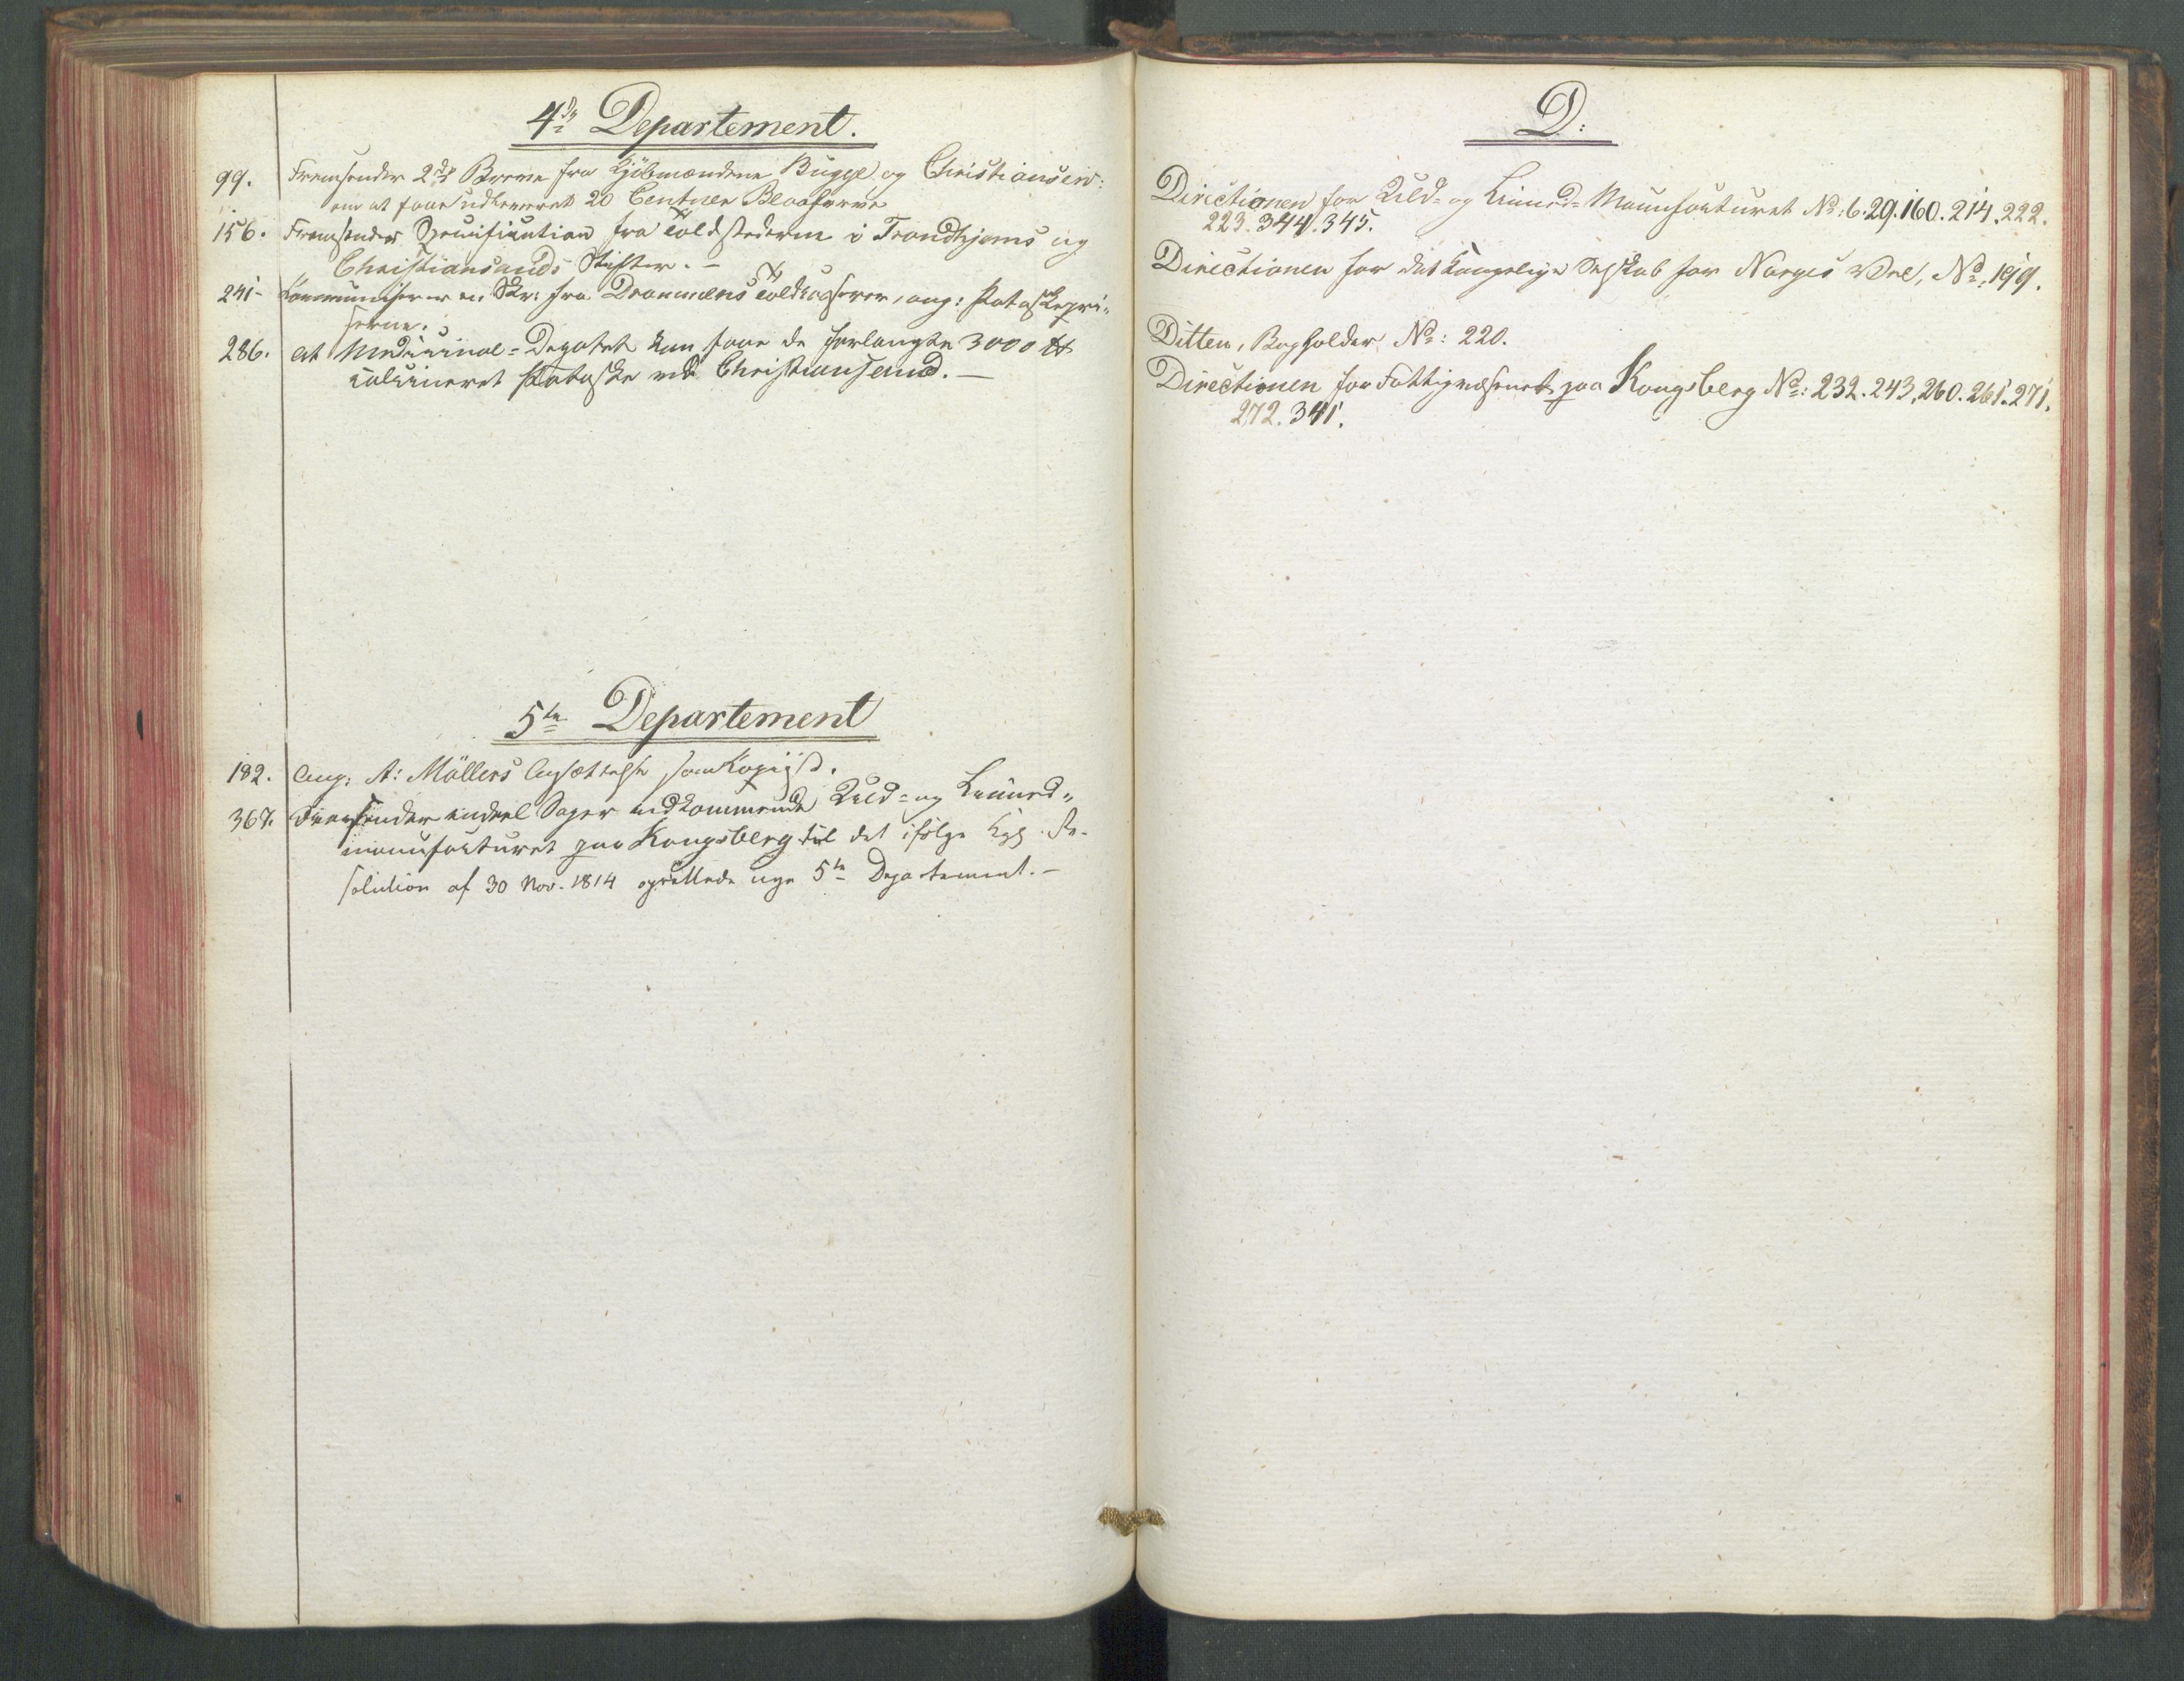 4de Departement.
99. Fremsender 2de Breve fra Kjöbmændene Bugge og Christiansen:
om at faae udleveret 20 Centner Blaafarve
156. Fremsender Specification fra Toldstederne i Trondhjems og
Christiansands Stifter. -
241- Communiserer en Skr: fra Drammens Toldcasserer, ang: Potaskepri-
serne.
286. At Medicinal-Depotet kan faae de forlangte 3000 ℔
calcineret Potaske ved Christiansand. -
5te Departement
182. Ang: A: Möllers Ansættelse som Kopiist.
367. Fremsender endeel Sager vedkommende Uld- og Linned-
manufacturet paa Kongsberg til det ifölge Kgl. Re-
solution af 30 Nov. 1814 oprettede nye 5te Departement. -
D:
Directionen for Uld- og Linned-Manufacturet No: 6. 29. 160. 214. 222.
223. 344. 345.
Directionen for det Kongelige Selskab for Norges Vel, No: 199.
Ditten, Bogholder No: 220.
Directionen for Fattigvæsenet paa Kongsberg No: 232. 243. 260. 261. 271.
272. 341.